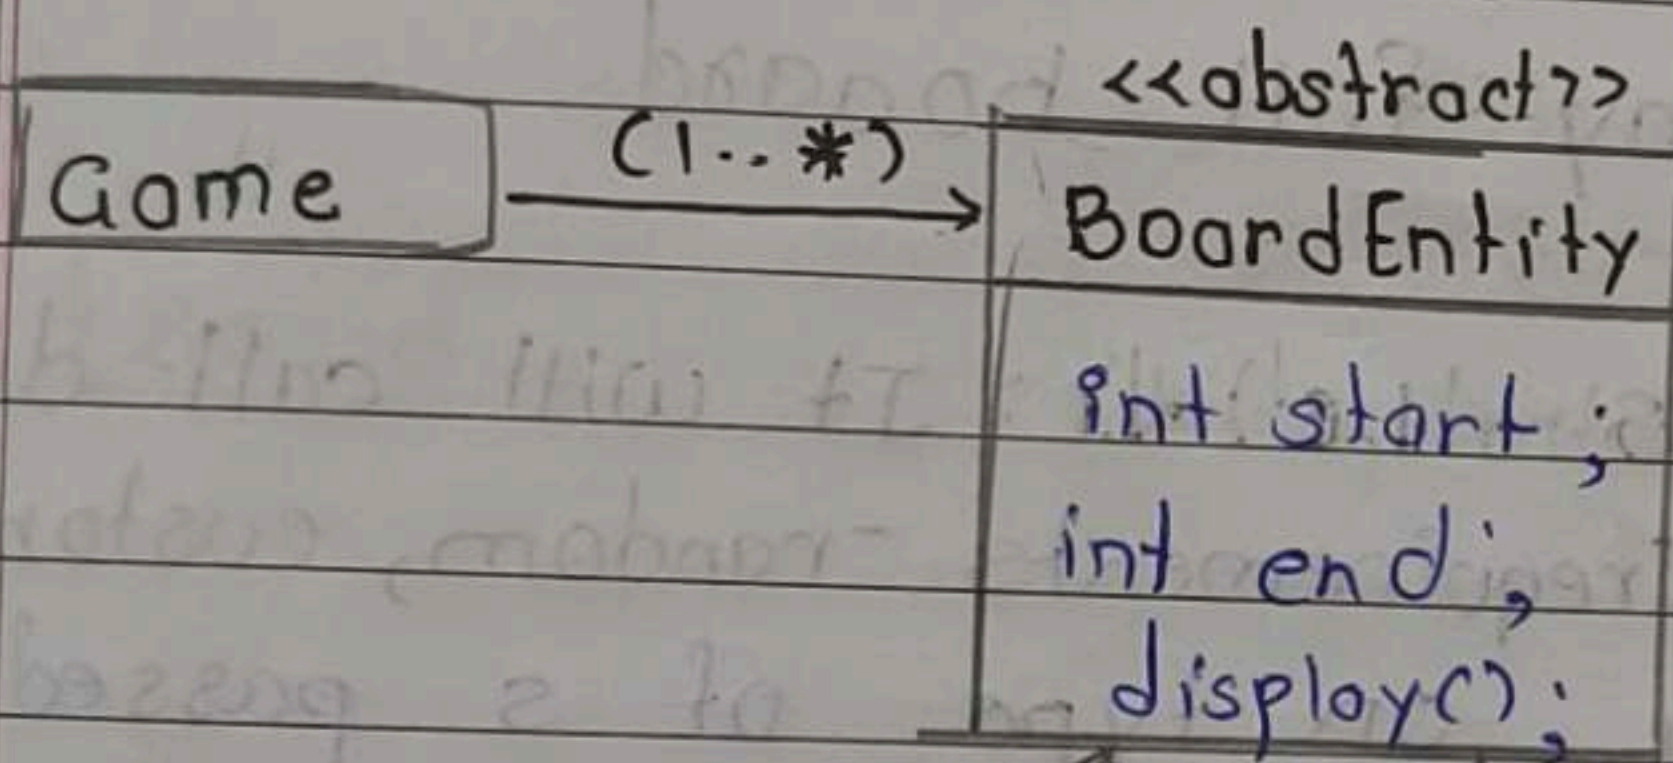 <<abstract>>
Game (1..*) BoardEntity
int start;
int end;
display();